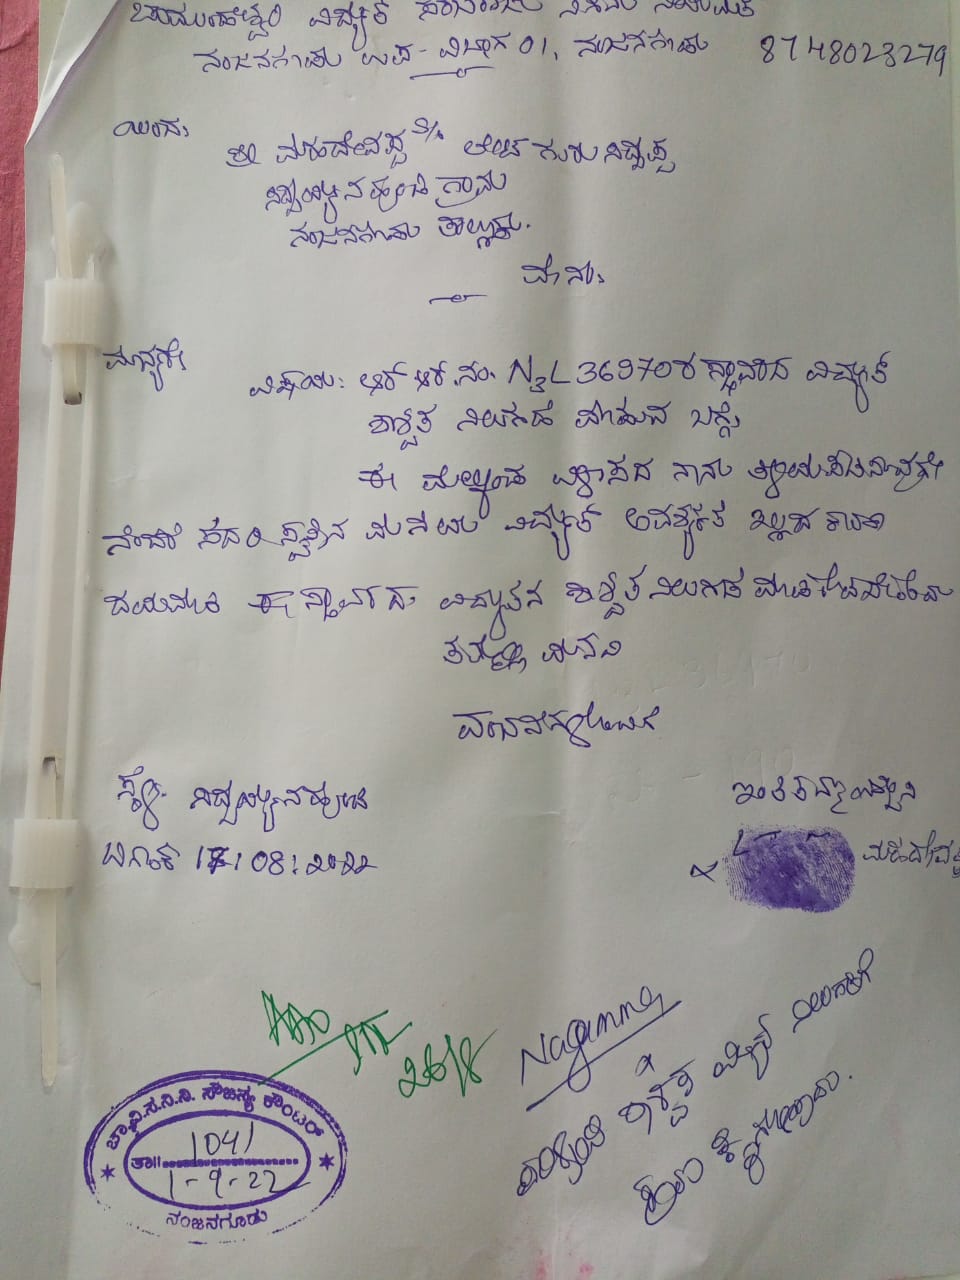 ಚಾಮುಂಡೇಶ್ವರಿ ವಿದ್ಯುತ್ ಸರಬರಾಜು ನಿಗಮ ನಿಯಮಿತ
ನಂಜನಗೂಡು ಉಪ-ವಿಭಾಗ 01, ನಂಜನಗೂಡು 8748023279
ಯಿಂದ,
ಶ್ರೀ ಮಹದೇವಪ್ಪ S/o ಲೇಟ್ ಗುರುಸಿದ್ದಪ್ಪ
ಸಿದ್ದಯ್ಯನಹುಂಡಿ ಗ್ರಾಮ
ನಂಜನಗೂಡು ತಾಲ್ಲೂಕು.
ಮಾನ್ಯರೇ
ವಿಷಯ: ಆರ್.ಆರ್.ನಂ. N3L36970ರ ಸ್ಥಾವರದ ವಿದ್ಯುತ್
ಶಾಶ್ವತ ನಿಲುಗಡೆ ಮಾಡುವ ಬಗ್ಗೆ
ಈ ಮೇಲ್ಕಂಡ ವಿಳಾಸದ ನಾನು
ನೆಂದರೆ ಸದರಿ ಮನೆಯ ವಿದ್ಯುತ್ ಅವಶ್ಯಕತೆ ಇಲ್ಲದ ಕಾರಣ
ದಯಮಾಡಿ ಈ ಸ್ಥಾವರದ ವಿದ್ಯುತನ್ನ ಶಾಶ್ವತ ನಿಲುಗಡೆ
ತಮ್ಮಲ್ಲಿ ಮನವಿ
ವಂದನೆಗಳೊಂದಿಗೆ
ಸ್ಥಳ: ಸಿದ್ದಯ್ಯನಹುಂಡಿ
ಇಂತಿ ತಮ್ಮ ವಿಶ್ವಾಸಿ
ದಿನಾಂಕ 17:08:2022
ಮಹದೇವಪ್ಪ
AAO
26/8
Nagamma
ಶಾಶ್ವತ ವಿದ್ಯುತ್ ನಿಲುಗಡೆಗೆ
ಚಾ.ವಿ.ಸ.ನಿ.ನಿ. ಸೌಜನ್ಯ ಕೌಂಟರ್
1041
ತಾ||
1-9-22
ನಂಜನಗೂಡು